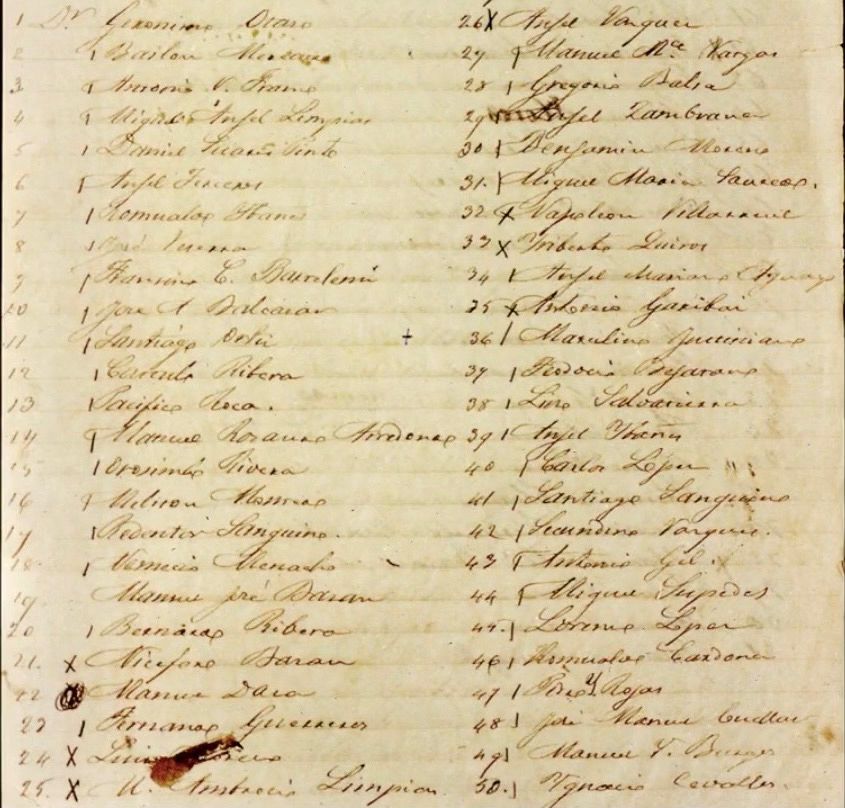 1 Dr Geronimo Otazo
2 Bailon Mercado
3 Antonio V. Franco
4 Miguel Anjel Limpias
5 Daniel Suares Pinto
6 Anjel
7 Romualdo Ibanes
8 José
9 Francisco C. Barthelemi
10 José A Balcazar
11 Santiago Ortiz
12 Ribera
13 Pacifico Roca.
14 Manuel Rosendo Arredondo
15 Onesimo Rivera
16 Melison
17 Redentor Sanguino.
18 Menacho
19 Manuel José Bazan
20 Bernardo Ribero
21. X Niceforo Bazan
22 Manuel Daza
23 Fernando Guerreros
24 X Luis
25. X M. Ambrocio Limpias.
26 X Anjel Vasquez
27 Manuel Ma Vargas
28 Gregorio Balsa
29 Anjel Zambrana
30 Benjamin Moreno
31. Miguel Maria Saucedo.
32 X Napoleon Villarroel
33 X Iriberto Quiros
34 Anjel Mariano
35 X Antonio Garibai
36 Marcelino Justiniano
37 Teodocio Bejarano
38 Lino Salvatierra
39 Anjel Ybañes
40 Carlos Lopez
41 Santiago Sanguino
42 Secundino Vasquez.
43 Antonio Gil.
44 Miguel Sespedes
45. Lorenzo Lopez
46 Romualdo Cardona
47 Rojas
48 José Manuel Cuellar
49 Manuel T. Burgos
50. Ygnacio Cevallos.